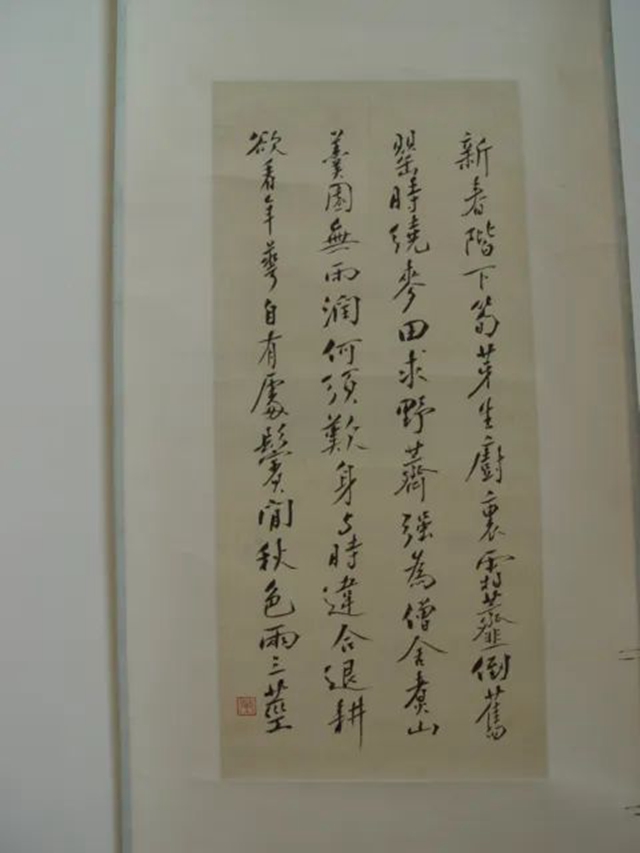 新春階下筍芽生廚裏霜虀倒舊
罌時繞麥田求野薺强為僧舍煮山
羹園無雨潤何須歎身与時違合退耕
欲看年華自有處鬢間秋色兩三莖